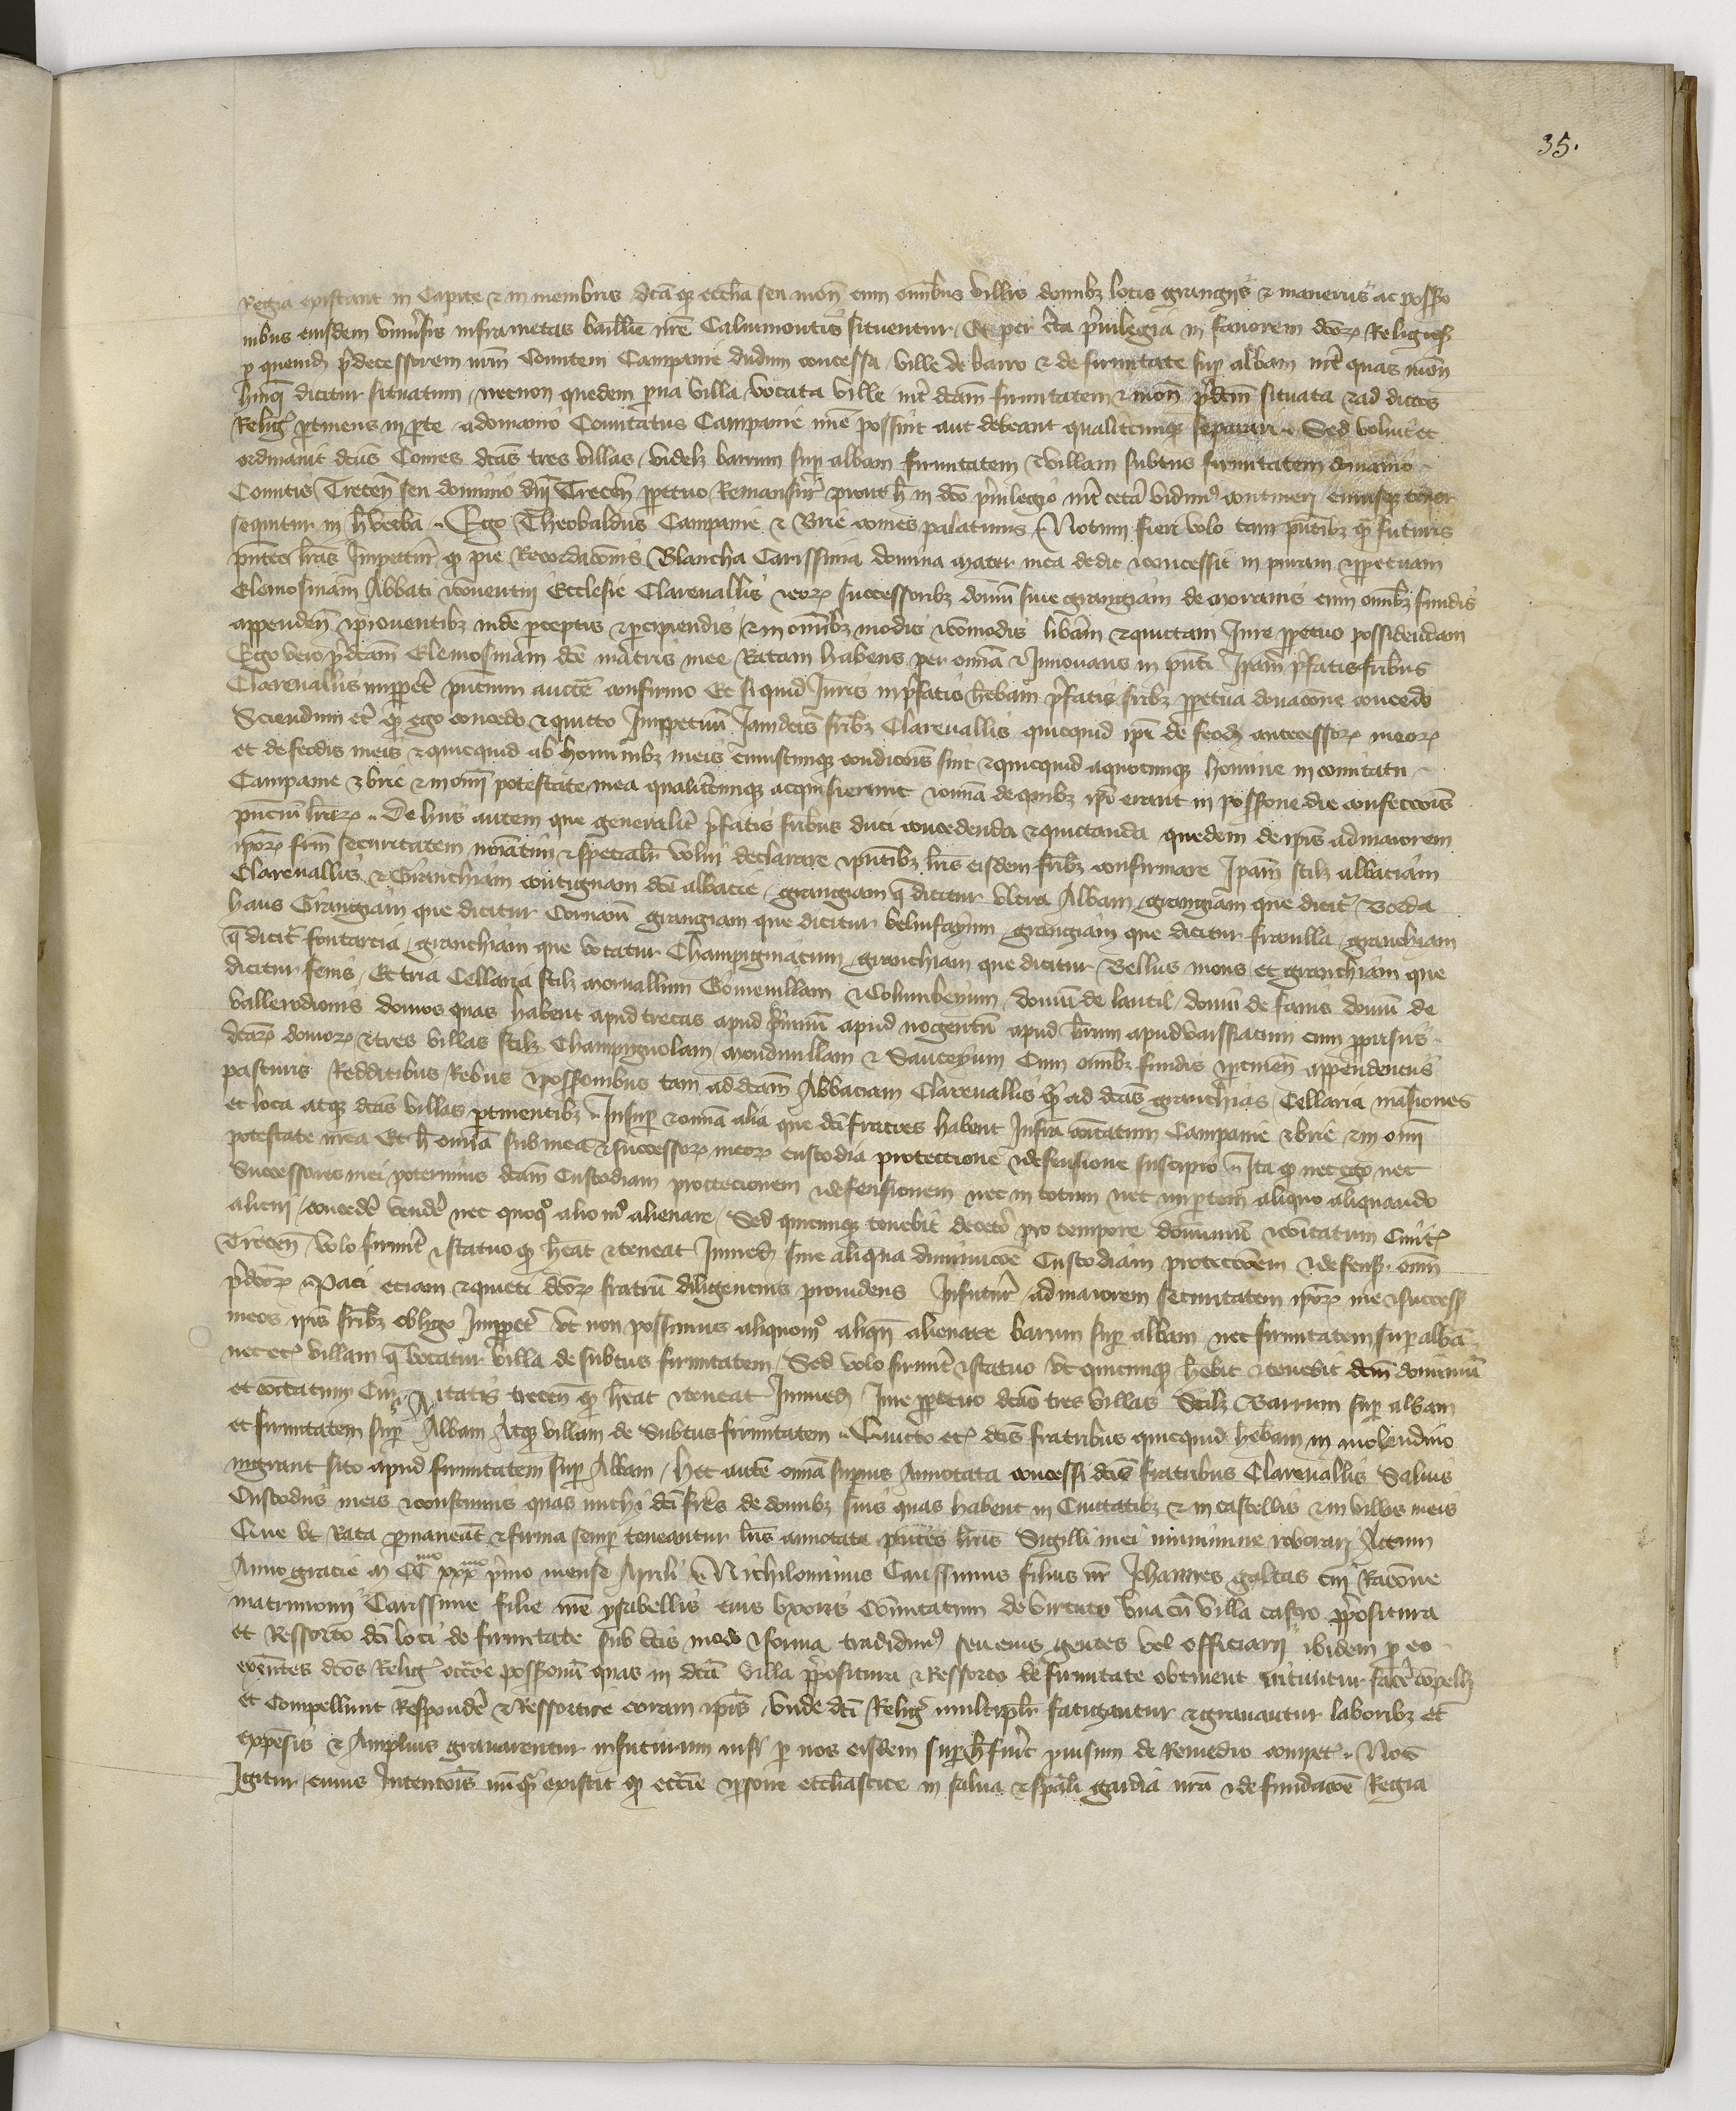 35.
Regia existant in Capite & in membris dictaque ecclia seu mon cum omnibus villis domibz locis grangiis & maneriis ac possessio
nibus eiusdem universis infra metas baillie nre Calvimontis situentur Et per certa privilegia in favorem dcorum Religios
per quemdam predecessorem nrm Comitem Campanie dudum concessa ville de barro & de firmitate sup albam inter quas mon
huiusmodi dicitur situatum necnon quedam parva villa vocata ville inter dictam firmitatem & mon predictum situata & ad dictos
Relig pertinens in parte a domanio Comitatus Campanie non possint aut debeant qualitercumque separari Sed voluit et
ordinavit dictus Comes dictas tres villas videlicet barrum sup albam firmitatem & villam subtus firmitatem domanio
Comitis Trecen seu dominio dni Trecen perpetuo Remansur prout hec in dco privilegio inter cetera vidimus contineri cuiusque tenor
sequitur in hec verba Ego Theobaldus Campanie & Brie comes palatinus Notum fieri volo tam presentibz quam futuris
presentes lras Inspectur quod pie Recordacionis Blancha Carissima domina mater mea dedit & concessit in puram & perpetuam
Elemosinam Abbati & conventui Ecclesie Clarevallis & eorum successoribz domum sive grangiam de moranis cum omibz fundis
appenden & proventibz inde perceptis & percipiendis & in omibz modis & comodis liberam & quittam Jure perpetuo possidendam
Ego vero predictam Elemosinam dce matris mee Ratam habens per omnia & Innovans in presenti Ipam prefatis fribus
Clarevallis imperpet presencium auctte confirmo Et si quid Juris in prefatis hebam prefatis fribz perpetua donacione concedo
Sciendum est quod ego concedo & quitto Imperpetuum Jamdictis fribz Clarevallis quicquid ipi de feodis antecessorum meorum
et de feodis meis & quicquid ab hominibz meis cuiuscumque condicionis sint & quicquid a quocumque homine in comitatu
Campanie & brie & in omni potestate mea qualitercumque acquisierunt & omnia de quibz ipi erant in possessione die confeccionis
presencium lrarum De hiis autem que generaliter prefatis fribus duci concedenda & quictanda quedam de ipis ad maiorem
ipsorum frum securitatem nominatim & specialiter volui declarare & presentibz lris eisdem fribz confirmare Ipam scilz abbaciam
Clarevallis & Granchiam contiguam dce abbacie grangiam que dicitur ultra Albam grangiam que dicitur Borda
haus Grangiam que dicitur Cornaum grangiam que dicitur belinfayum grangiam que dicitur fravilla granchiam
que dicitur fontarcia granchiam que vocatur Champigniacum granchiam que dicitur Bellus mons et granchiam que
dicitur fenis Et tria Cellaria scilz morvallum Gomevillam & Columbeyum domum de lantil domum de fanis domum de
vallerodionis domos quas habent apud trecas apud pruvinum apud nogentum apud barrum apud vassiacum cum porprisiis
dcarum domorum & tres villas scilz Champignolam mondevillam & Sauceyum Cum omibz fundis pertinen appendenciis
pasturis Redditibus Rebus & possessionibus tam ad dictam Abbaciam Clarevallis quam ad dictas granchias Cellaria mansiones
et loca atque dictas villas pertinentibz Insuper & omnia alia que dicti fratres habent Infra comitatum Campanie & brie & in omni
potestate mea Et hec omnia sub mea & successorum meorum custodia protectione & defensione suscipio Ita quod nec ego nec
Successores mei poterimus dictam Custodiam protectionem & defensionem nec in totum nec in partem aliquo aliquando
alicui concedere vendere nec quoquo alio modo alienare Sed quicumque tenebit de cetero pro tempore dominium & comitatum Civit
Trecen volo firmiter & statuo quod heat & teneat Inmediate sine aliqua diminucione Custodiam protectionem & defens omnium
predcorum Paci eciam & quieti dcorum fratrum diligencius providens In futurum ad maiorem securitatem ipsorum me & success
meos ipis fribz obligo Imperpet ut non possimus aliquomodo aliquando alienare barrum super albam nec firmitatem super albam
nec etiam villam que vocatur villa de subtus firmitatem Sed volo firmiter & statuo ut quicumque hebit & tenebit dictum dominium
et comitatum Civitatis trecen quod heat & teneat Inmediate Jure perpetuo dictas tres villas Scilz Barrum super albam
et firmitatem super Albam Atque villam de Subtus firmitatem Quicto etiam dictis fratribus quicquid hebam in molendino
nigrant sito apud firmitatem super Albam hec autem omnia superius Annotata concessi dictis fratribus Clarevallis Salvis
Custodiis meis & consuetudinis quas michi dicti fres de domibz suis quas habent in Civitatibz & in castellis & in villis meis
Que ut Rata permaneant & firma semper teneantur lris annotata presentes lras Sigilli mei munimine roborari Actum
Anno gracie m CCmo xxxmo primo mense Aprili Nichilominus Carissimus filius nr Johannes galeas cui Racione
matrimonii Carissime filie nre ysabellis eius uxoris Comitatum de virtuto una cum villa castro prepositura
et Ressorto dicti loci de firmitate sub certis modo & forma tradidimus seu eius gentes vel officiarii ibidem pro eo
exentes dictos Relig occasione possessionum quas in dicta villa prepositura & Ressorto de firmitate obtinent nituntur facere compellere
et Compellunt Respondere & Ressortire coram ipis unde dicti Relig multipliciter fatigantur & gravantur laboribz et
expensis & Amplius gravarentur in futurum nisi per nos eisdem super hoc fuerit provisum de Remedio compet Nos
Igitur cuius Intencionis nunquam existit quod ecclesie & persone ecclesiastice in salva & speciali gardia nra & de fundacione Regia